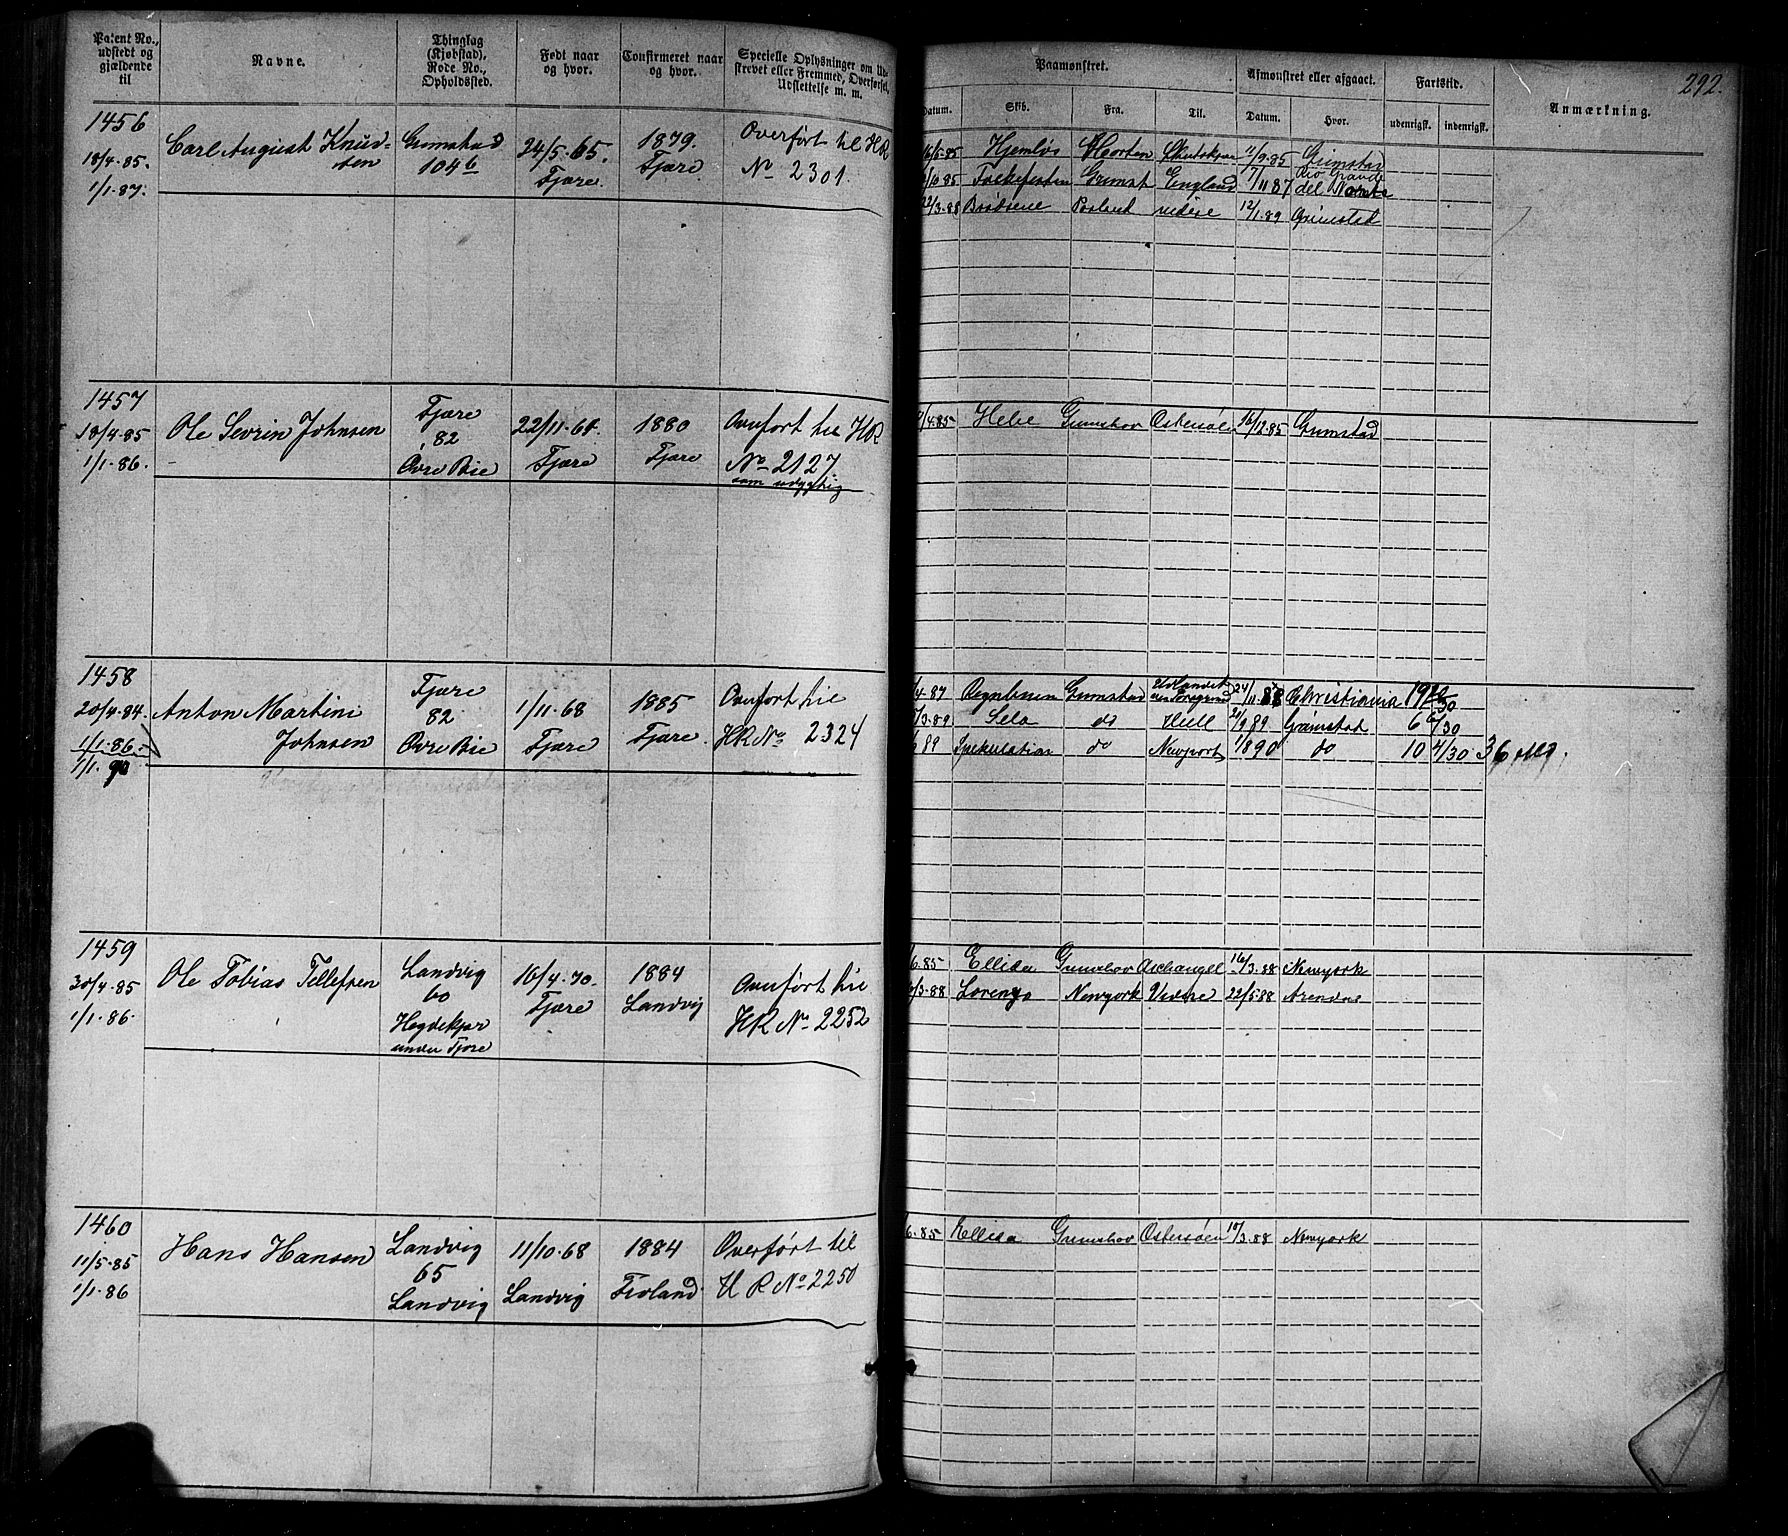 Patent No., udstedt og gjældende til
Navne.
Thinglag (Kjøbstad), Rode No., Opholdssted.
Født naar og hvor.
Confirmeret naar og hvor.
Specielle Oplysninger om Ud-
strevet eller Fremmed, Overførsel,
Udslettelse m. m.
Paamønstret.
Datum.
Skib.
Fra.
Til.
Afmønstret eller afgaaet.
Datum.
Hvor.
Fartstid.
udenrigsk.
indenrigsk.
Anmærkning.
292.
1456
18/4-85.
1/1-87.
Carl August Knud-
sen
Grimstad
104b
24/5-65.
Fjære
1879.
Fjære
Overført til HR
No 2301
16/5-85 Hjemløs Horten 11/9-85 Grimstad
/10 85 Folkefesten Grimst England 7/11 87 Rio Grande
del Norte
22/3-88 videre 12/1-89 Grimstad
1457
18/4-85
1/1-86.
Ole Sevrin Johnsen
Fjære
82
Øvre Bie
22/11-65.
Fjære
1880
Fjære
Overført til HR
No 2127
som udygtig
/4-85 Hebe Grimshov Østersøen 16/12-85 Grimstad
1458
20/4-84.
1/1-86.
1/1-90
Anton Martin
Johnsen
Fjære
82
Øvre Bie
1/11-68
Fjære
1885
Fjære
Overført til
HR No 2324
/4-87 Regnbuen Grimstad 24/11 88 Christiania 19
/3-89 do Hull 21/9 89 Grimstad 6 6/30
89 Spekulation do Newport 1/8 90 do 10 4/30 36 Md.
1459
30/4-85
1/1-86.
Ole Tobias Tellefsen
Landvig
60
Hegdekjær
under Fjære
16/4-70.
Fjære
1884
Landvig
Overført til
HR No 2252
6.85 Ellida Grimshov Archangel 16/3-88 Newyork
/3-88 Lorenzo Newyork Videre 22/5 88 Arendal
1460
11/5-85
1/1-86
Hans Hansen
Landvig
65
Landvig
11/10-68
Landvig
1884
Froland
Overført til
HR No 2250
6-85 Ellida Grimshov Østersøen 17/3-88 Newyork